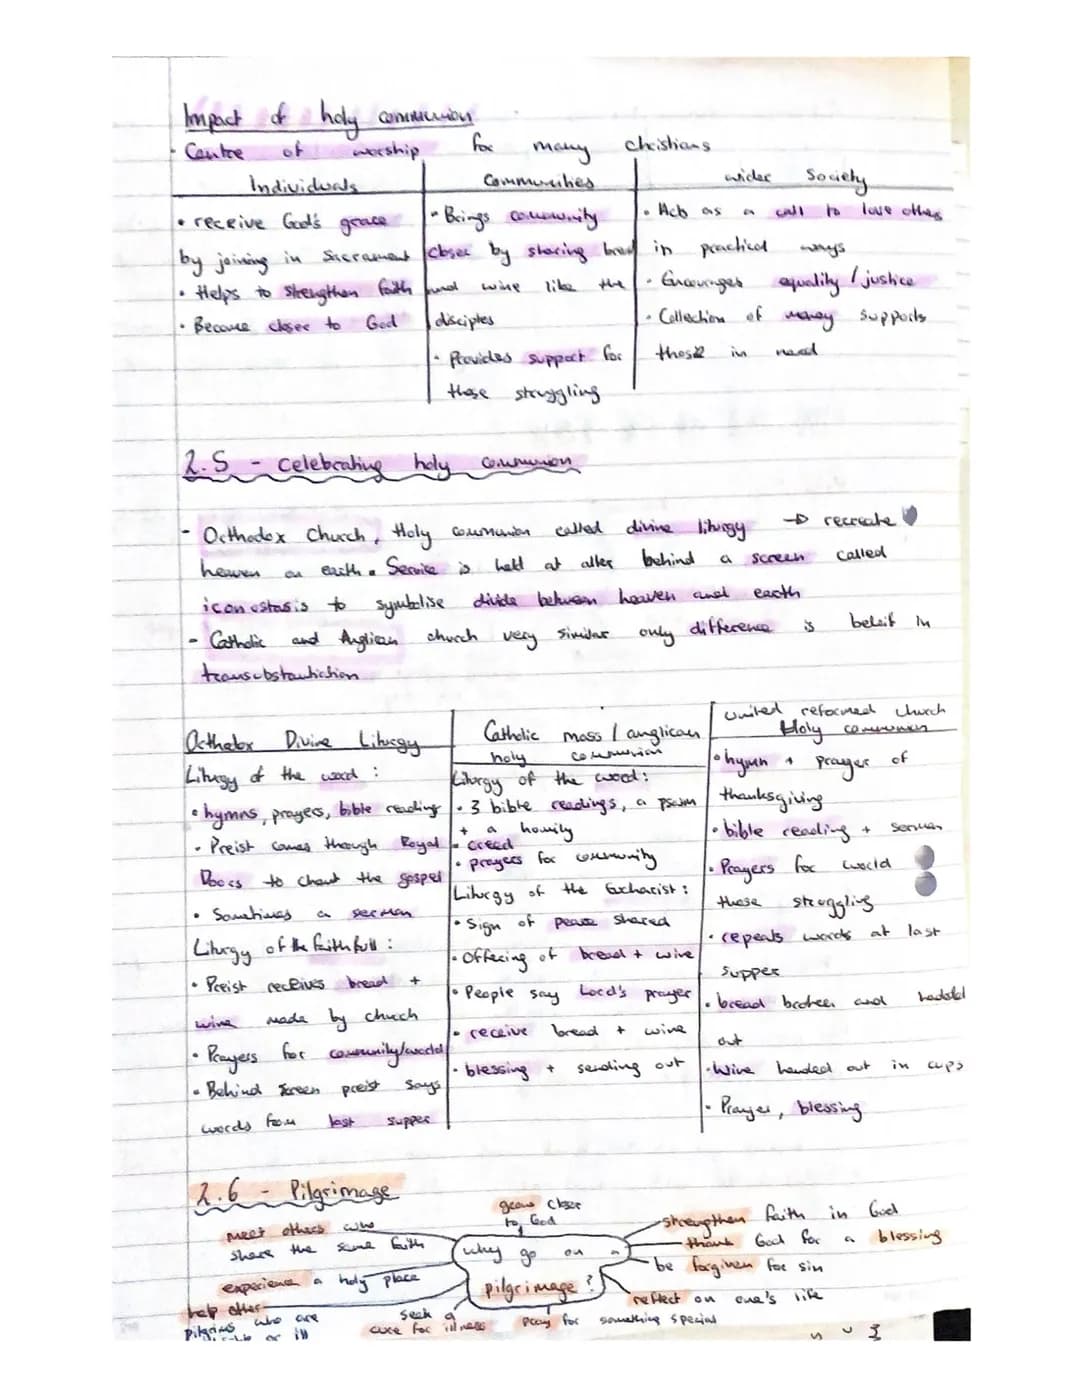 Impact of holy communion
- Centre of worship for many christians
Individuals
• receive God's grace
by joining in Sacrament
• Helps to strengthen faith
• Become closer to God
Communities
• Brings community
closer by sharing bread
and wine like the
disciples
• Provides support for
those struggling
wider Society
• Acts as a call to love others
in practical ways
• Encourages equality / justice
• Collection of money supports
those in need
2.5 - celebrating holy communion
- Orthodox Church, Holy communion called divine liturgy → recreate
heaven on earth. Service is held at alter behind a screen called
iconostasis to symbolise divide between heaven and earth
- Catholic and Anglican church very similar only difference is beleif in
transubstantiation
Orthodox Divine Liturgy
Liturgy of the word :
• hymns, prayers, bible reading
• Preist comes through Royal
Doors to chant the gospel
• Sometimes a sermon
Liturgy of the faithfull :
• Preist receives bread +
wine made by church
• Prayers for community/world
• Behind screen preist says
words from last supper
Catholic mass / anglican
holy communion
Liturgy of the word :
• 3 bible readings, a psalm
+ a homily
• creed
• prayers for community
Liturgy of the Eucharist :
• Sign of peace shared
• Offering of bread + wine
• People say Lord's prayer
• receive bread + wine
• blessing + sending out
united reformed church
Holy communion
• hymn + prayer of
thanksgiving
• bible reading + sermon
• Prayers for world
those struggling
• repeats words at last
supper
• bread broken and handed
out
• Wine handed out in cups
• Prayer, blessing
2.6 - Pilgrimage
why go on a
pilgrimage ?
grow closer
to God
strengthen faith in God
thank God for a blessing
be forgiven for sin
reflect on one's life
pray for something special
seek a
cure for illness
help other
pilgrims who are
or ill
experience a holy place
meet others who
share the same faith